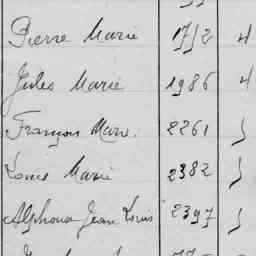 Pierre Marie 1752 4
Jules Marie 1986 4
François Marie. 2261
Louis Marie 2382
Alphonse Jean Louis 2397